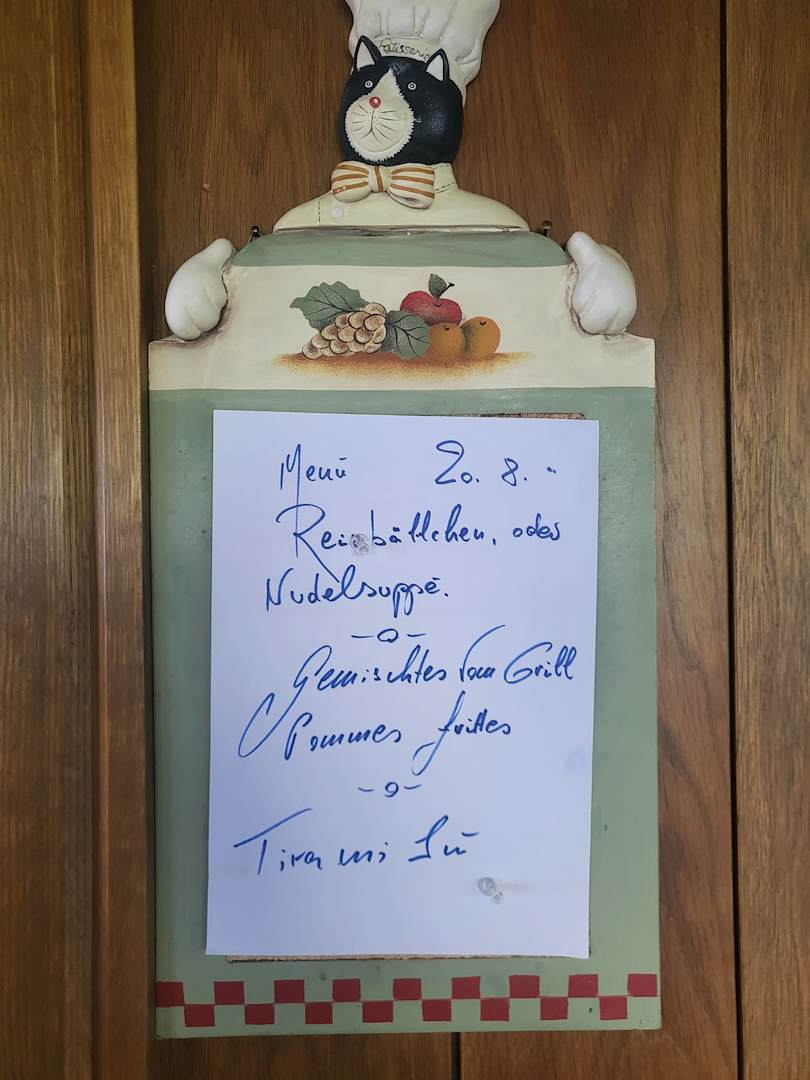 Patisserie
Menü 20. 8. "
Reisbällchen, oder
Nudelsuppe.
Gemischtes vom Grill
Pommes frittes
Tira mi Sú